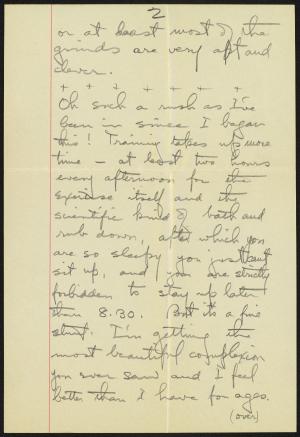 2
or at least most of the
grinds are very apt and
clever.
+ + + + + + +
Oh such a rush as I've
been in since I began
this! Training takes up more
time - at least two hours
every afternoon for the
exercise itself and the
scientific kind of bath and
rub down, after which you
are so sleepy you just can't
sit up, and you are strictly
forbidden to stay up later
than 8.30. But it's a fine
stunt. I'm getting the
most beautiful complexion
you ever saw and I feel
better than I have for ages.
(over)